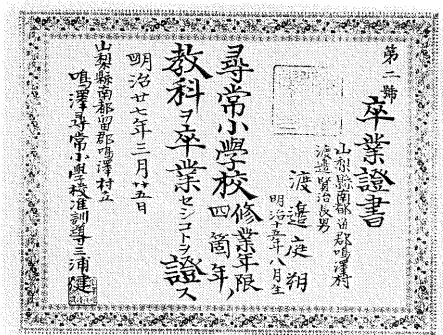 第二號
卒業證書
山梨縣南都留郡鳴澤村
渡邉賢治長男
渡邉庭朔
明治十五年八月生
尋常小學校修業年限四箇年ノ
教科ヲ卒業セシコトヲ證ス
明治廿七年三月廿五日
山梨縣南都留郡鳴澤村立
鳴澤尋常小學校准訓導三浦健